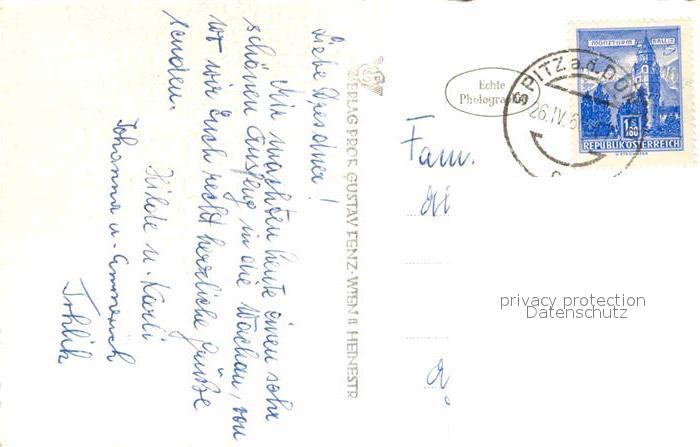 Liebe Dresdner!
Wir machten heute einen sehr
schönen Ausflug in die Wachau, von
wo wir Euch recht herrliche Grüße
senden.
Hilde u. Karli
Johanna u. Emmerich
VERLAG PROF. GUSTAV FENZ · WIEN II HEINESTR
Echte
Photographie
Fam.
SPITZ a.d. DON
26.IV.6
MÜNZTURM HALL i.T.
S
1.80
REPUBLIK ÖSTERREICH
privacy protection
Datenschutz